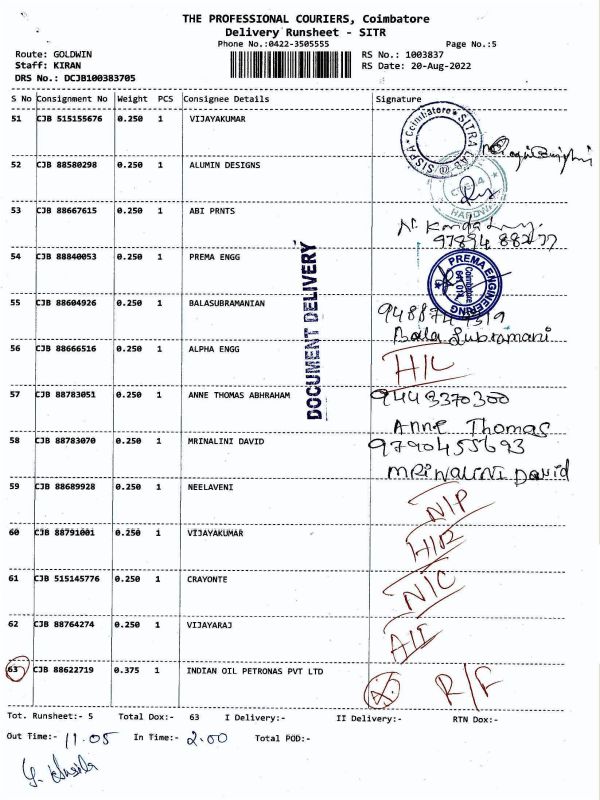 THE PROFESSIONAL COURIERS, Coimbatore
Delivery Runsheet - SITR
Phone No.:0422-3505555 Page No.:5
Route: GOLDWIN RS No.: 1003837
Staff: KIRAN RS Date: 20-Aug-2022
DRS No.: DCJB100383705
S No Consignment No Weight PCS Consignee Details Signature
51 CJB 515155676 0.250 1 VIJAYAKUMAR
Coimbatore SITRA SISPA
52 CJB 88580298 0.250 1 ALUMIN DESIGNS
HARDWARE
53 CJB 88667615 0.250 1 ABI PRNTS
54 CJB 88840053 0.250 1 PREMA ENGG
PREMA ENGINEERING Coimbatore
55 CJB 88604926 0.250 1 BALASUBRAMANIAN
Bala Subramani
DOCUMENT DELIVERY
56 CJB 88666516 0.250 1 ALPHA ENGG H/L
57 CJB 88783051 0.250 1 ANNE THOMAS ABHRAHAM 9443370300
Anne Thomas
58 CJB 88783070 0.250 1 MRINALINI DAVID 9790455693
MRINALINI DAVID
59 CJB 88689928 0.250 1 NEELAVENI N/P
60 CJB 88791001 0.250 1 VIJAYAKUMAR
61 CJB 515145776 0.250 1 CRAYONTE N/C
62 CJB 88764274 0.250 1 VIJAYARAJ
63 CJB 88622719 0.375 1 INDIAN OIL PETRONAS PVT LTD R/F
Tot. Runsheet:- 5 Total Dox:- 63 I Delivery:- II Delivery:- RTN Dox:-
Out Time:- 11.05 In Time:- 2.00 Total POD:-